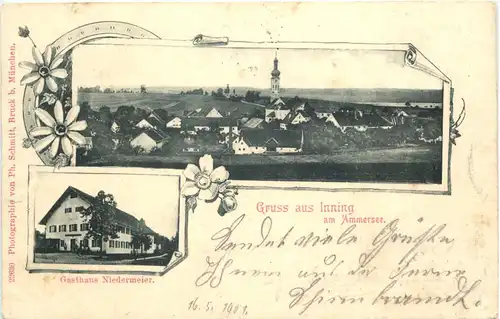 22930 Photographie von Ph. Schmitt, Bruck b. München.
Gruss aus Inning
am Ammersee.
Gasthaus Niedermeier.
Sendet viele Grüße
Ihnen aus der Ferne
16.5. 1901.